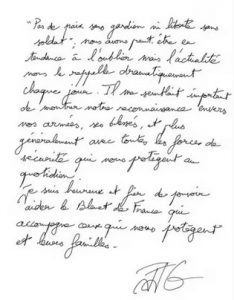 "Pas de paix sans gardien ni liberté sans
soldat" ; nous avons peut-être eu
tendance à l'oublier mais l'actualité
nous le rappelle dramatiquement
chaque jour. Il me semblait important
de montrer notre reconnaissance envers
nos armées, ses blessés, et plus
généralement avec toutes les forces de
sécurité qui nous protègent au
quotidien.
Je suis heureux et fier de pouvoir
aider le Bleuet de France qui
accompagne ceux qui nous protègent
et leurs familles.